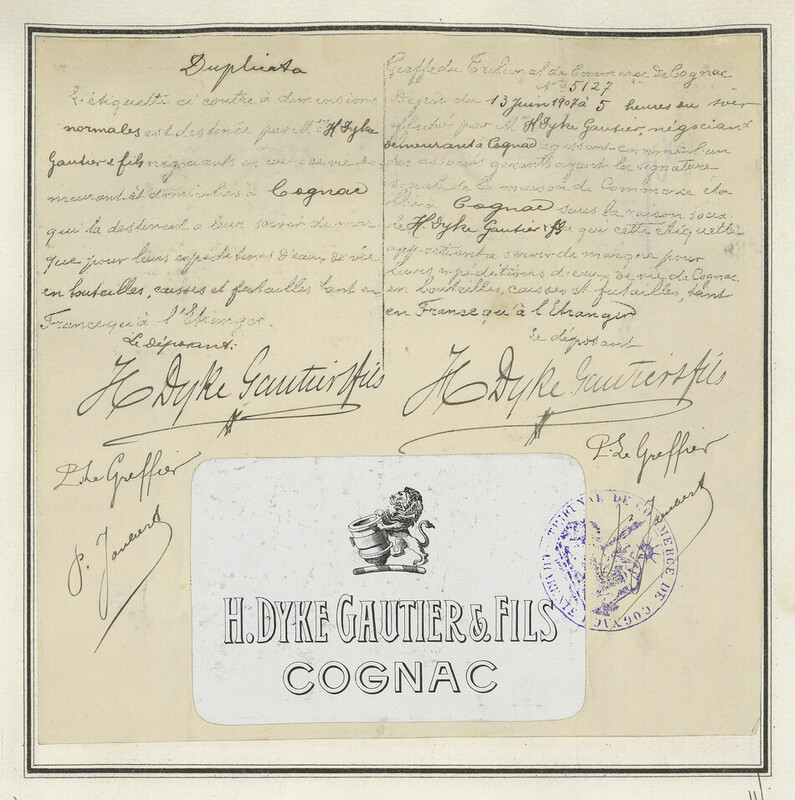 Duplicata
L'étiquette ci contre à dimensions
normales est destinée par Mrs H Dyke
Gautier & fils négociants en eaux de vie de
meurant et domiciliés à Cognac
qui la destinent à leur servir de mar
que pour leurs expéditions d'eaux de vie
en bouteilles, caisses et futailles tant en
France qu'à l'Etranger.
Le Déposant:
H Dyke Gautier & fils
P. Le Greffier
Greffe du Tribunal de Commerce de Cognac
No 5127
Dépôt du 13 Juin 1907 à 5 heures du soir
effectué par Mr H Dyke Gautier, négociant
demeurant à Cognac agissant comme l'un
des associés gérants ayant la signature
sociale de la maison de Commerce éta
blie à Cognac sous la raison socia
le H. Dyke Gautier & fils que cette étiquette
servir de marque pour
leurs expéditions d'eaux de vie de Cognac
en bouteilles, caisses et futailles, tant
en France qu'à l'Etranger
Le déposant
H Dyke Gautier & fils
P. Le Greffier
H. DYKE GAUTIER & FILS
COGNAC
TRIBUNAL DE COMMERCE DE COGNAC (CHARENTE)